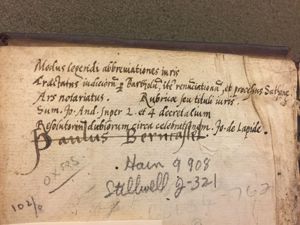 Modus legendi abbreviationes iuris
Tractatus iudiciorum Bartholi, ite renunciationum, et processus Sathane.
Ars notariatus. Rubricae seu tituli iuris.
Sum. Jo. And. super 2. et 4 decretalium
Resolutorium dubiorum circa celebrationem. Jo. de Lapide.
Paulus Bernca
OXFRS
Hain 9908
Stillwell J-321
102/
762